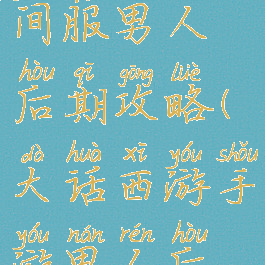 间服男人
hòu qī gōng lüè
后期攻略(
dà huà xī yóu shǒu
大话西游手
yóu nán rén hòu
游男人后